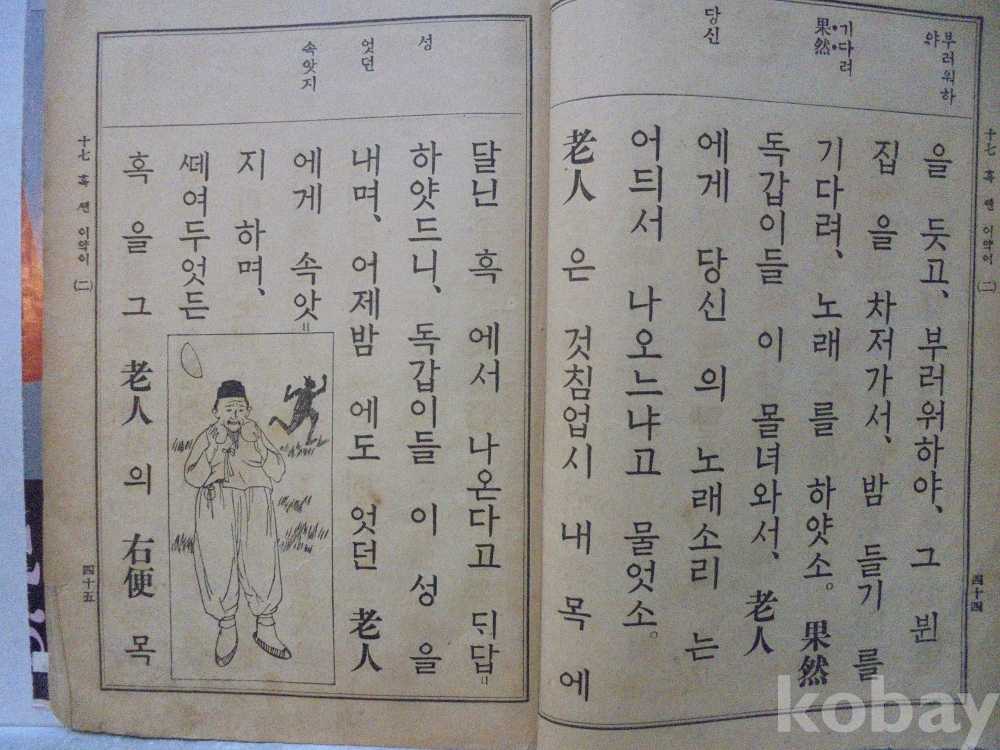 부러워하
야
기다려
果然
당신
을 듯고, 부러워하야, 그 뷘
집 을 차저가서, 밤 들기 를
기다려, 노래 를 하얏소. 果然
독갑이들 이 몰녀와서, 老人
에게 당신 의 노래소리 는
어듸서 나오느냐고 물엇소.
老人 은 것침업시 내 목 에
十七 혹 쎈 이약이 (二)
四十四
성
엇던
속앗지
달닌 혹 에서 나온다고 ᄃᆡ답
하얏드니, 독갑이들 이 성 을
내며, 어제밤 에도 엇던 老人
에게 속앗
지 하며,
ᄯᅦ여두엇든
혹 을 그 老人 의 右便 목
十七 혹 쎈 이약이 (二)
四十五
kobay